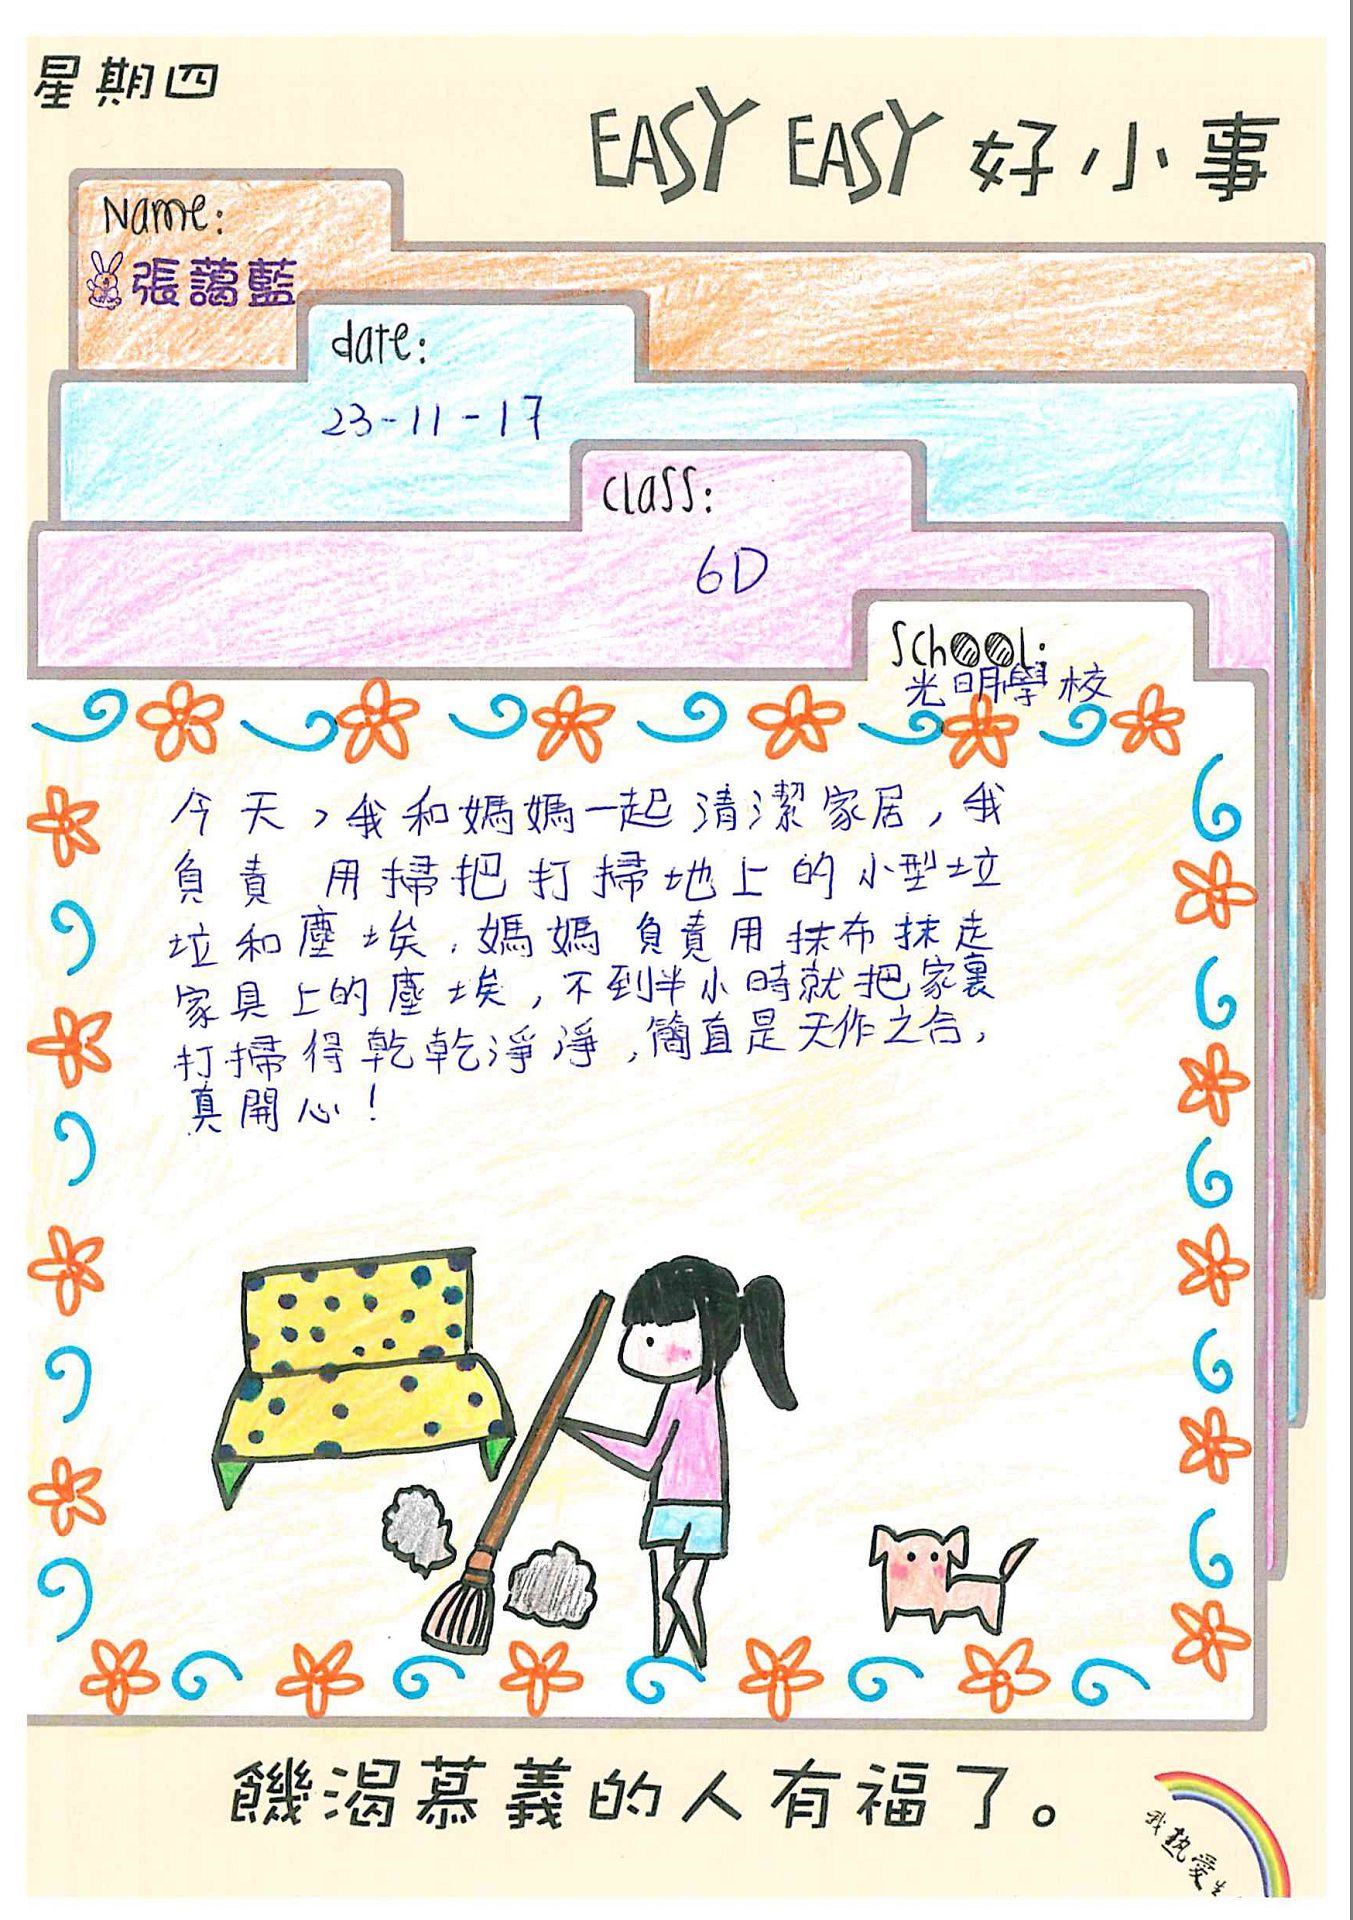 星期四
EASY EASY 好小事
Name:
張藹藍
date:
23-11-17
class:
6D
School:
光明學校
今天,我和媽媽一起清潔家居,我
負責用掃把打掃地上的小型垃
垃和塵埃,媽媽負責用抹布抹走
家具上的塵埃,不到半小時就把家裏
打掃得乾乾淨淨,簡直是天作之合,
真開心!
饑渴慕義的人有福了。
我熱愛生